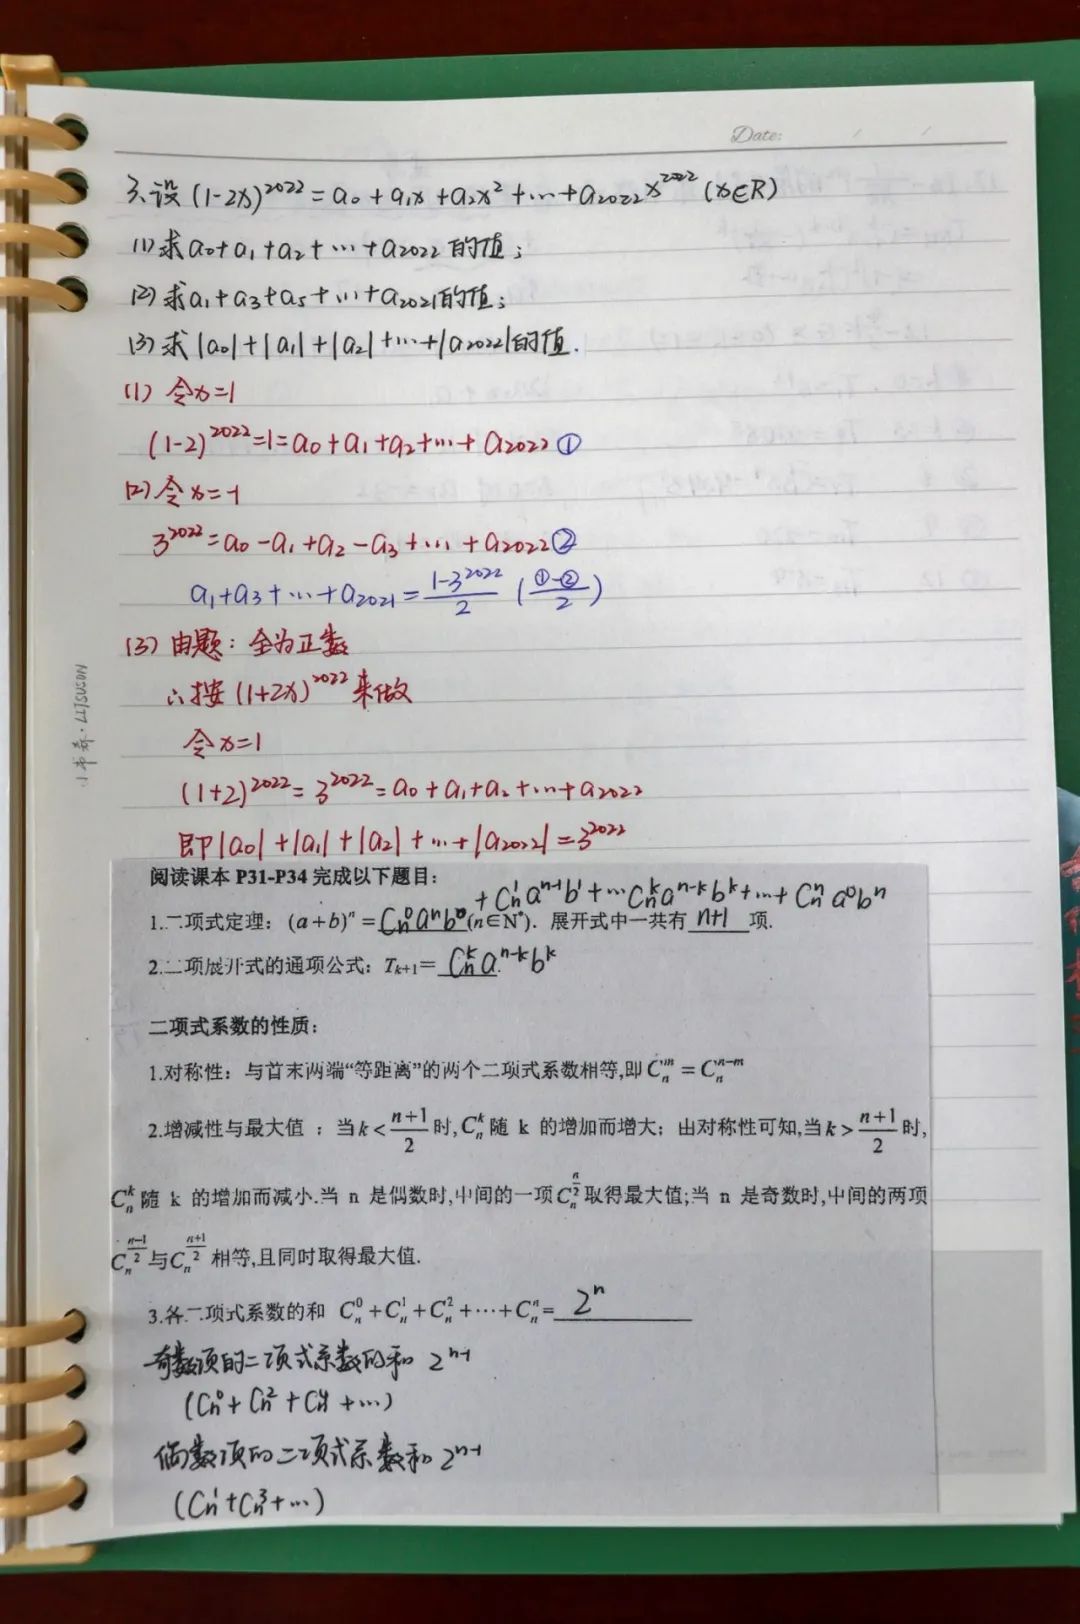 Date: / /
3.设 (1-2x)²⁰²² = a₀ + a₁x + a₂x² + … + a₂₀₂₂x²⁰²² (x∈R)
(1) 求a₀+a₁+a₂+…+a₂₀₂₂的值;
(2) 求a₁+a₃+a₅+…+a₂₀₂₁的值;
(3) 求|a₀|+|a₁|+|a₂|+…+|a₂₀₂₂|的值.
(1) 令x=1
(1-2)²⁰²²=1=a₀+a₁+a₂+…+a₂₀₂₂ ①
(2) 令x=-1
3²⁰²²=a₀-a₁+a₂-a₃+…+a₂₀₂₂ ②
a₁+a₃+…+a₂₀₂₁=(1-3²⁰²²)/2 ((①-②)/2)
(3) 由题: 全为正数
∴按(1+2x)²⁰²²来做
令x=1
(1+2)²⁰²²=3²⁰²²=a₀+a₁+a₂+…+a₂₀₂₂
即|a₀|+|a₁|+|a₂|+…+|a₂₀₂₂|=3²⁰²²
小书希·LIJSUSON
阅读课本 P31-P34 完成以下题目:
+Cₙ¹aⁿ⁻¹b¹+…Cₙᵏaⁿ⁻ᵏbᵏ+…+Cₙⁿa⁰bⁿ
1.二项式定理: (a+b)ⁿ=Cₙ⁰aⁿb⁰(n∈N*). 展开式中一共有 n+1 项.
2.二项展开式的通项公式: Tₖ₊₁= Cₙᵏaⁿ⁻ᵏbᵏ
二项式系数的性质:
1.对称性: 与首末两端“等距离”的两个二项式系数相等,即 Cₙᵐ = Cₙⁿ⁻ᵐ
2.增减性与最大值 : 当k<(n+1)/2时,Cₙᵏ随 k 的增加而增大; 由对称性可知,当k>(n+1)/2时,
Cₙᵏ随 k 的增加而减小.当 n 是偶数时,中间的一项Cₙ^(n/2)取得最大值;当 n 是奇数时,中间的两项
Cₙ^((n-1)/2)与Cₙ^((n+1)/2)相等,且同时取得最大值.
3.各二项式系数的和 Cₙ⁰+Cₙ¹+Cₙ²+⋯+Cₙⁿ= 2ⁿ
奇数项的二项式系数的和 2ⁿ⁻¹
(Cₙ⁰+Cₙ²+Cₙ⁴+…)
偶数项的二项式系数和 2ⁿ⁻¹
(Cₙ¹+Cₙ³+…)